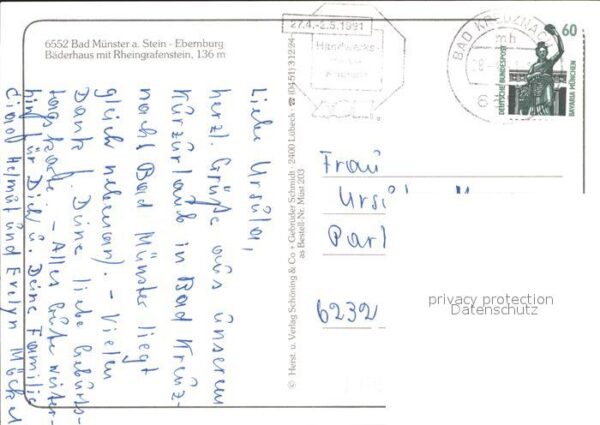 6552 Bad Münster a. Stein - Ebernburg
Bäderhaus mit Rheingrafenstein, 136 m
Liebe Ursula,
herzl. Grüße aus unserem
Kurzurlaub in Bad Kreuz-
nach (Bad Münster liegt
gleich nebenan). - Vielen
Dank f. Deine liebe Geburts-
tagskarte. - Alles Gute weiter-
hin für Dich u. Deine Familie
Helmut und Evelyn
© Herst. u. Verlag Schöning & Co + Gebrüder Schmidt · 24001 Lübeck · ☎ (0451) 3 12 24
as Bestell-Nr. Müst 203
27.4.-2.5.1991
Handwerks-
BAD KREUZNACH
mh
60
DEUTSCHE BUNDESPOST
BAVARIA MÜNCHEN
Frau
6232
privacy protection
Datenschutz